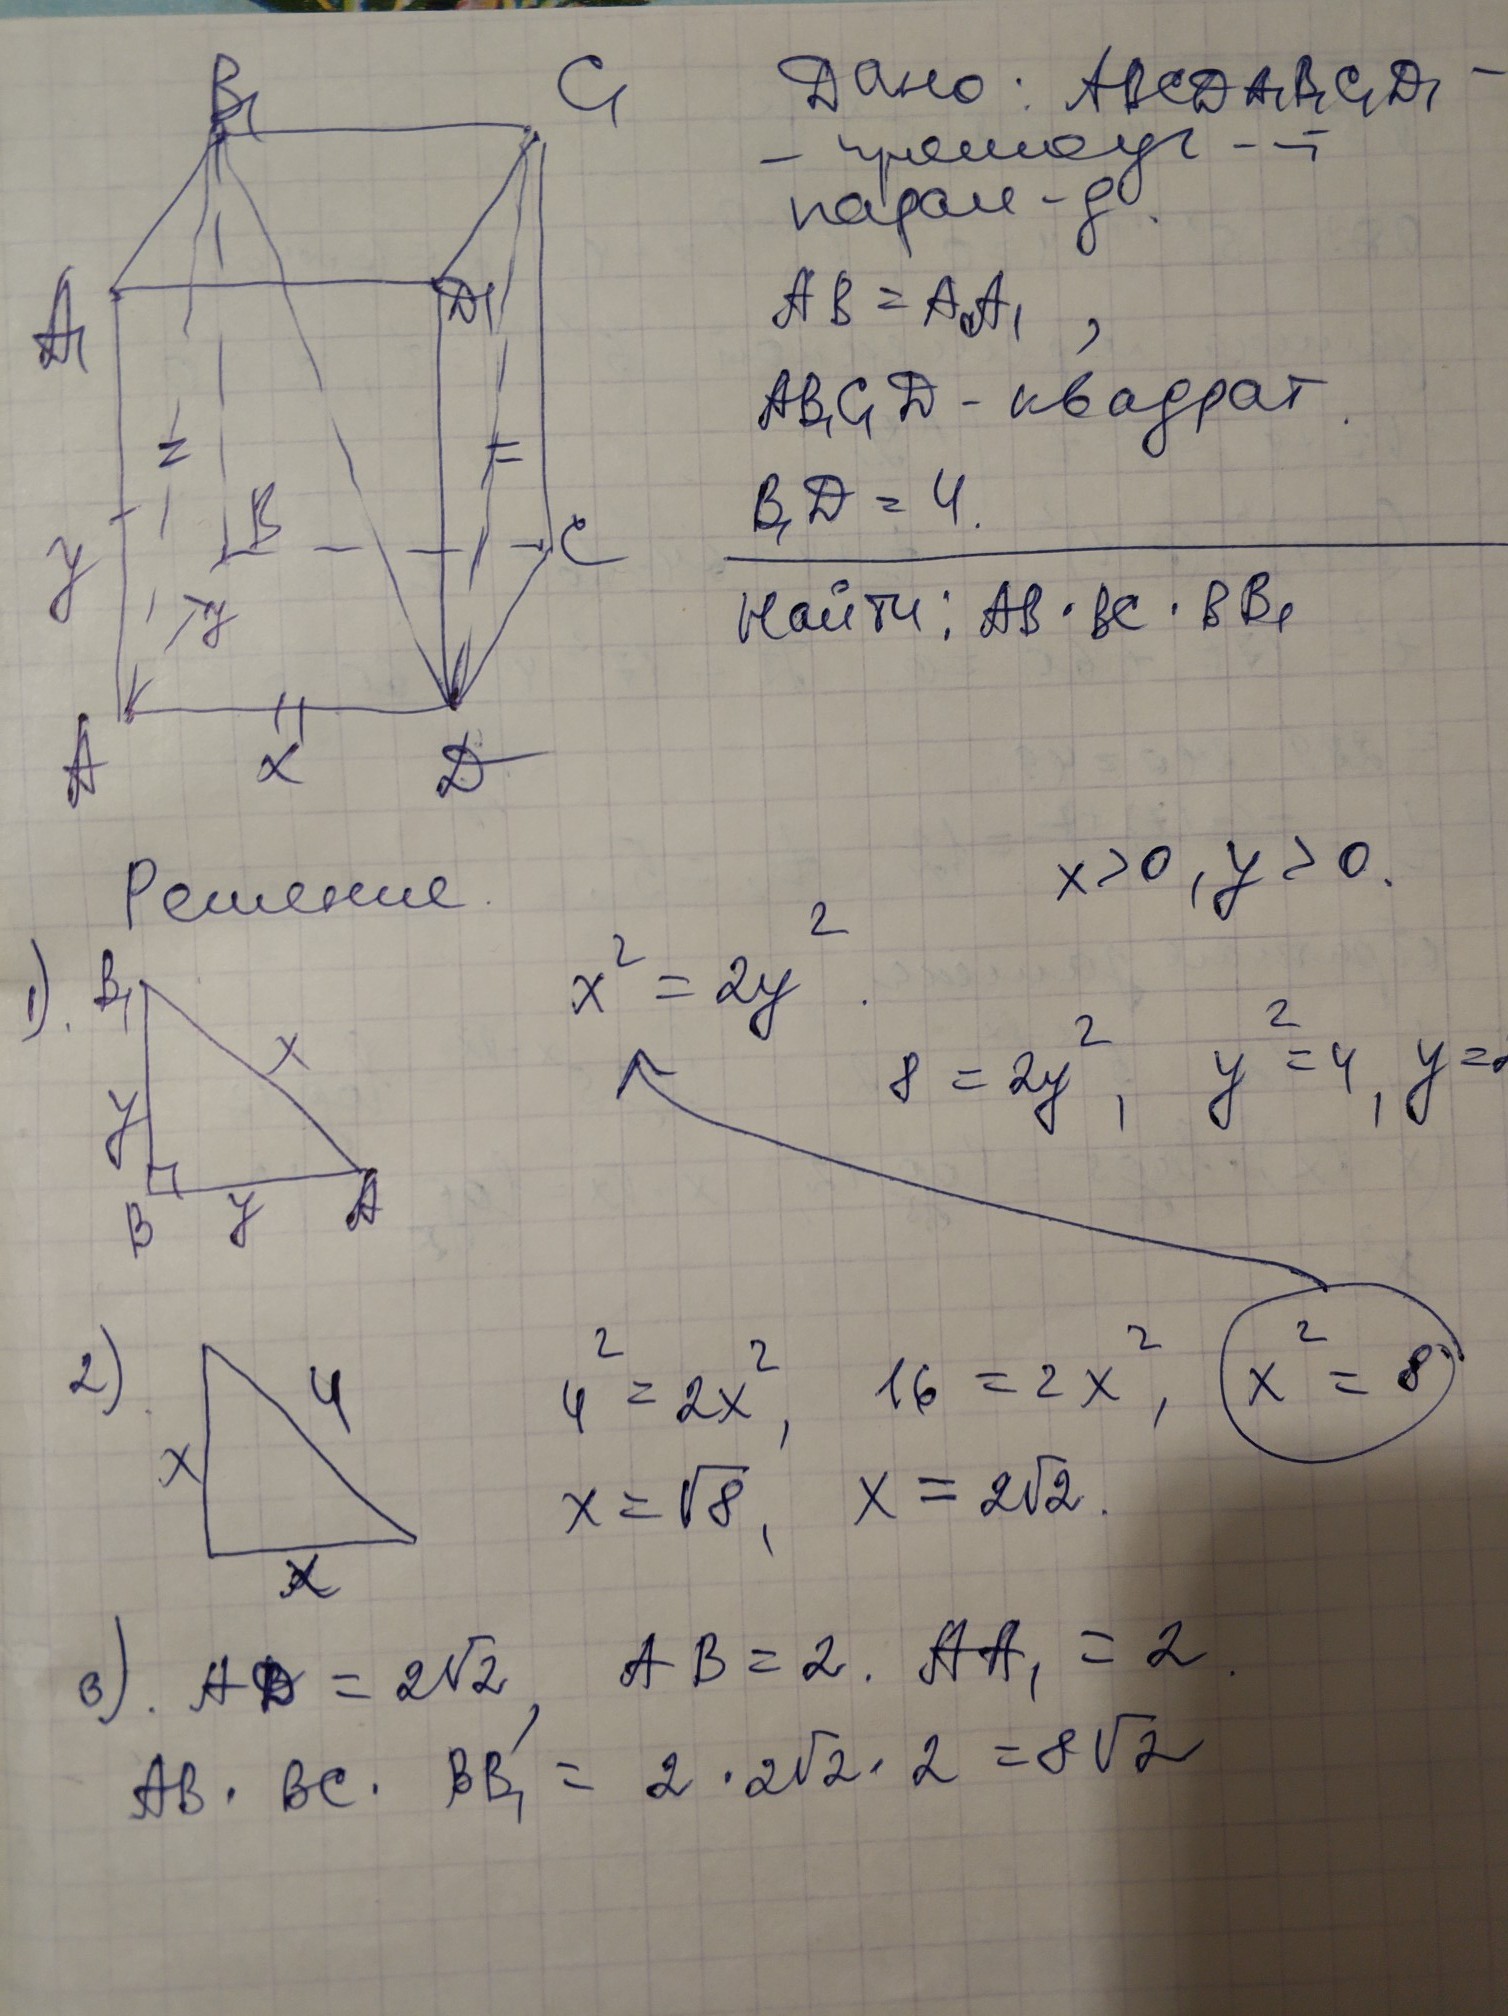 B₁
C₁
A₁
D₁
y
B
y
C
A
x
D
Дано: ABCDA₁B₁C₁D₁ -
- прямоуг - й
парал-д.
AB = AA₁,
AB₁C₁D - квадрат.
B₁D = 4.
Найти: AB · BC · BB₁
Решение.
x>0, y>0.
1).
B₁
x
y
B
y
A
x² = 2y².
8 = 2y², y² = 4, y = 2
2)
4
x
x
4² = 2x², 16 = 2x², x² = 8
x = √8, x = 2√2.
3). AD = 2√2, AB = 2. AA₁ = 2.
AB · BC · BB₁ = 2 · 2√2 · 2 = 8√2